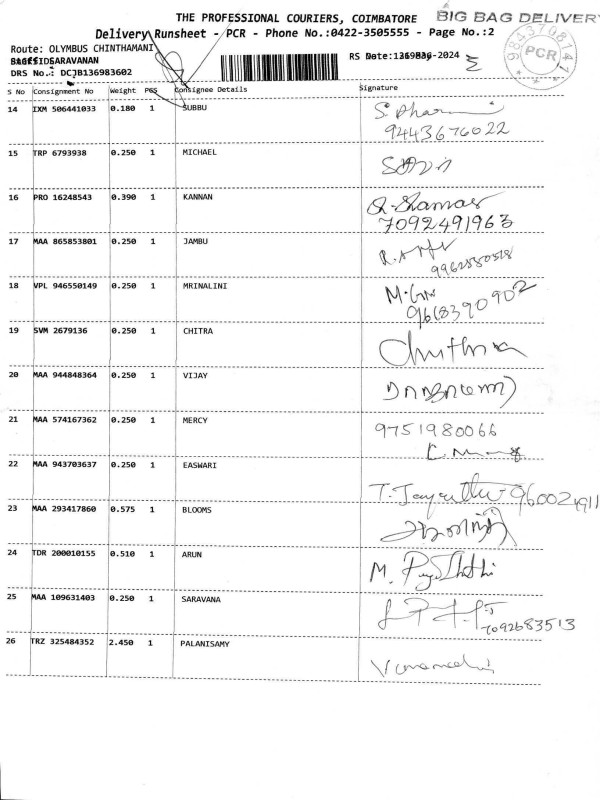 THE PROFESSIONAL COURIERS, COIMBATORE BIG BAG DELIVERY
Delivery Runsheet - PCR - Phone No.:0422-3505555 - Page No.:2
Route: OLYMBUS CHINTHAMANI
SARAVANAN
DRS No.: DCJB136983602
9843708141
PCR
S No Consignment No Weight PCS Consignee Details Signature
14 IXM 506441033 0.180 1 SUBBU
9443676022
15 TRP 6793938 0.250 1 MICHAEL
16 PRO 16248543 0.390 1 KANNAN
7092491963
17 MAA 865853801 0.250 1 JAMBU
18 VPL 946550149 0.250 1 MRINALINI
19 SVM 2679136 0.250 1 CHITRA Chithra
20 MAA 944848364 0.250 1 VIJAY
21 MAA 574167362 0.250 1 MERCY 9751980066
22 MAA 943703637 0.250 1 EASWARI
23 MAA 293417860 0.575 1 BLOOMS
24 TDR 200010155 0.510 1 ARUN
25 MAA 109631403 0.250 1 SARAVANA
7092683513
26 TRZ 325484352 2.450 1 PALANISAMY